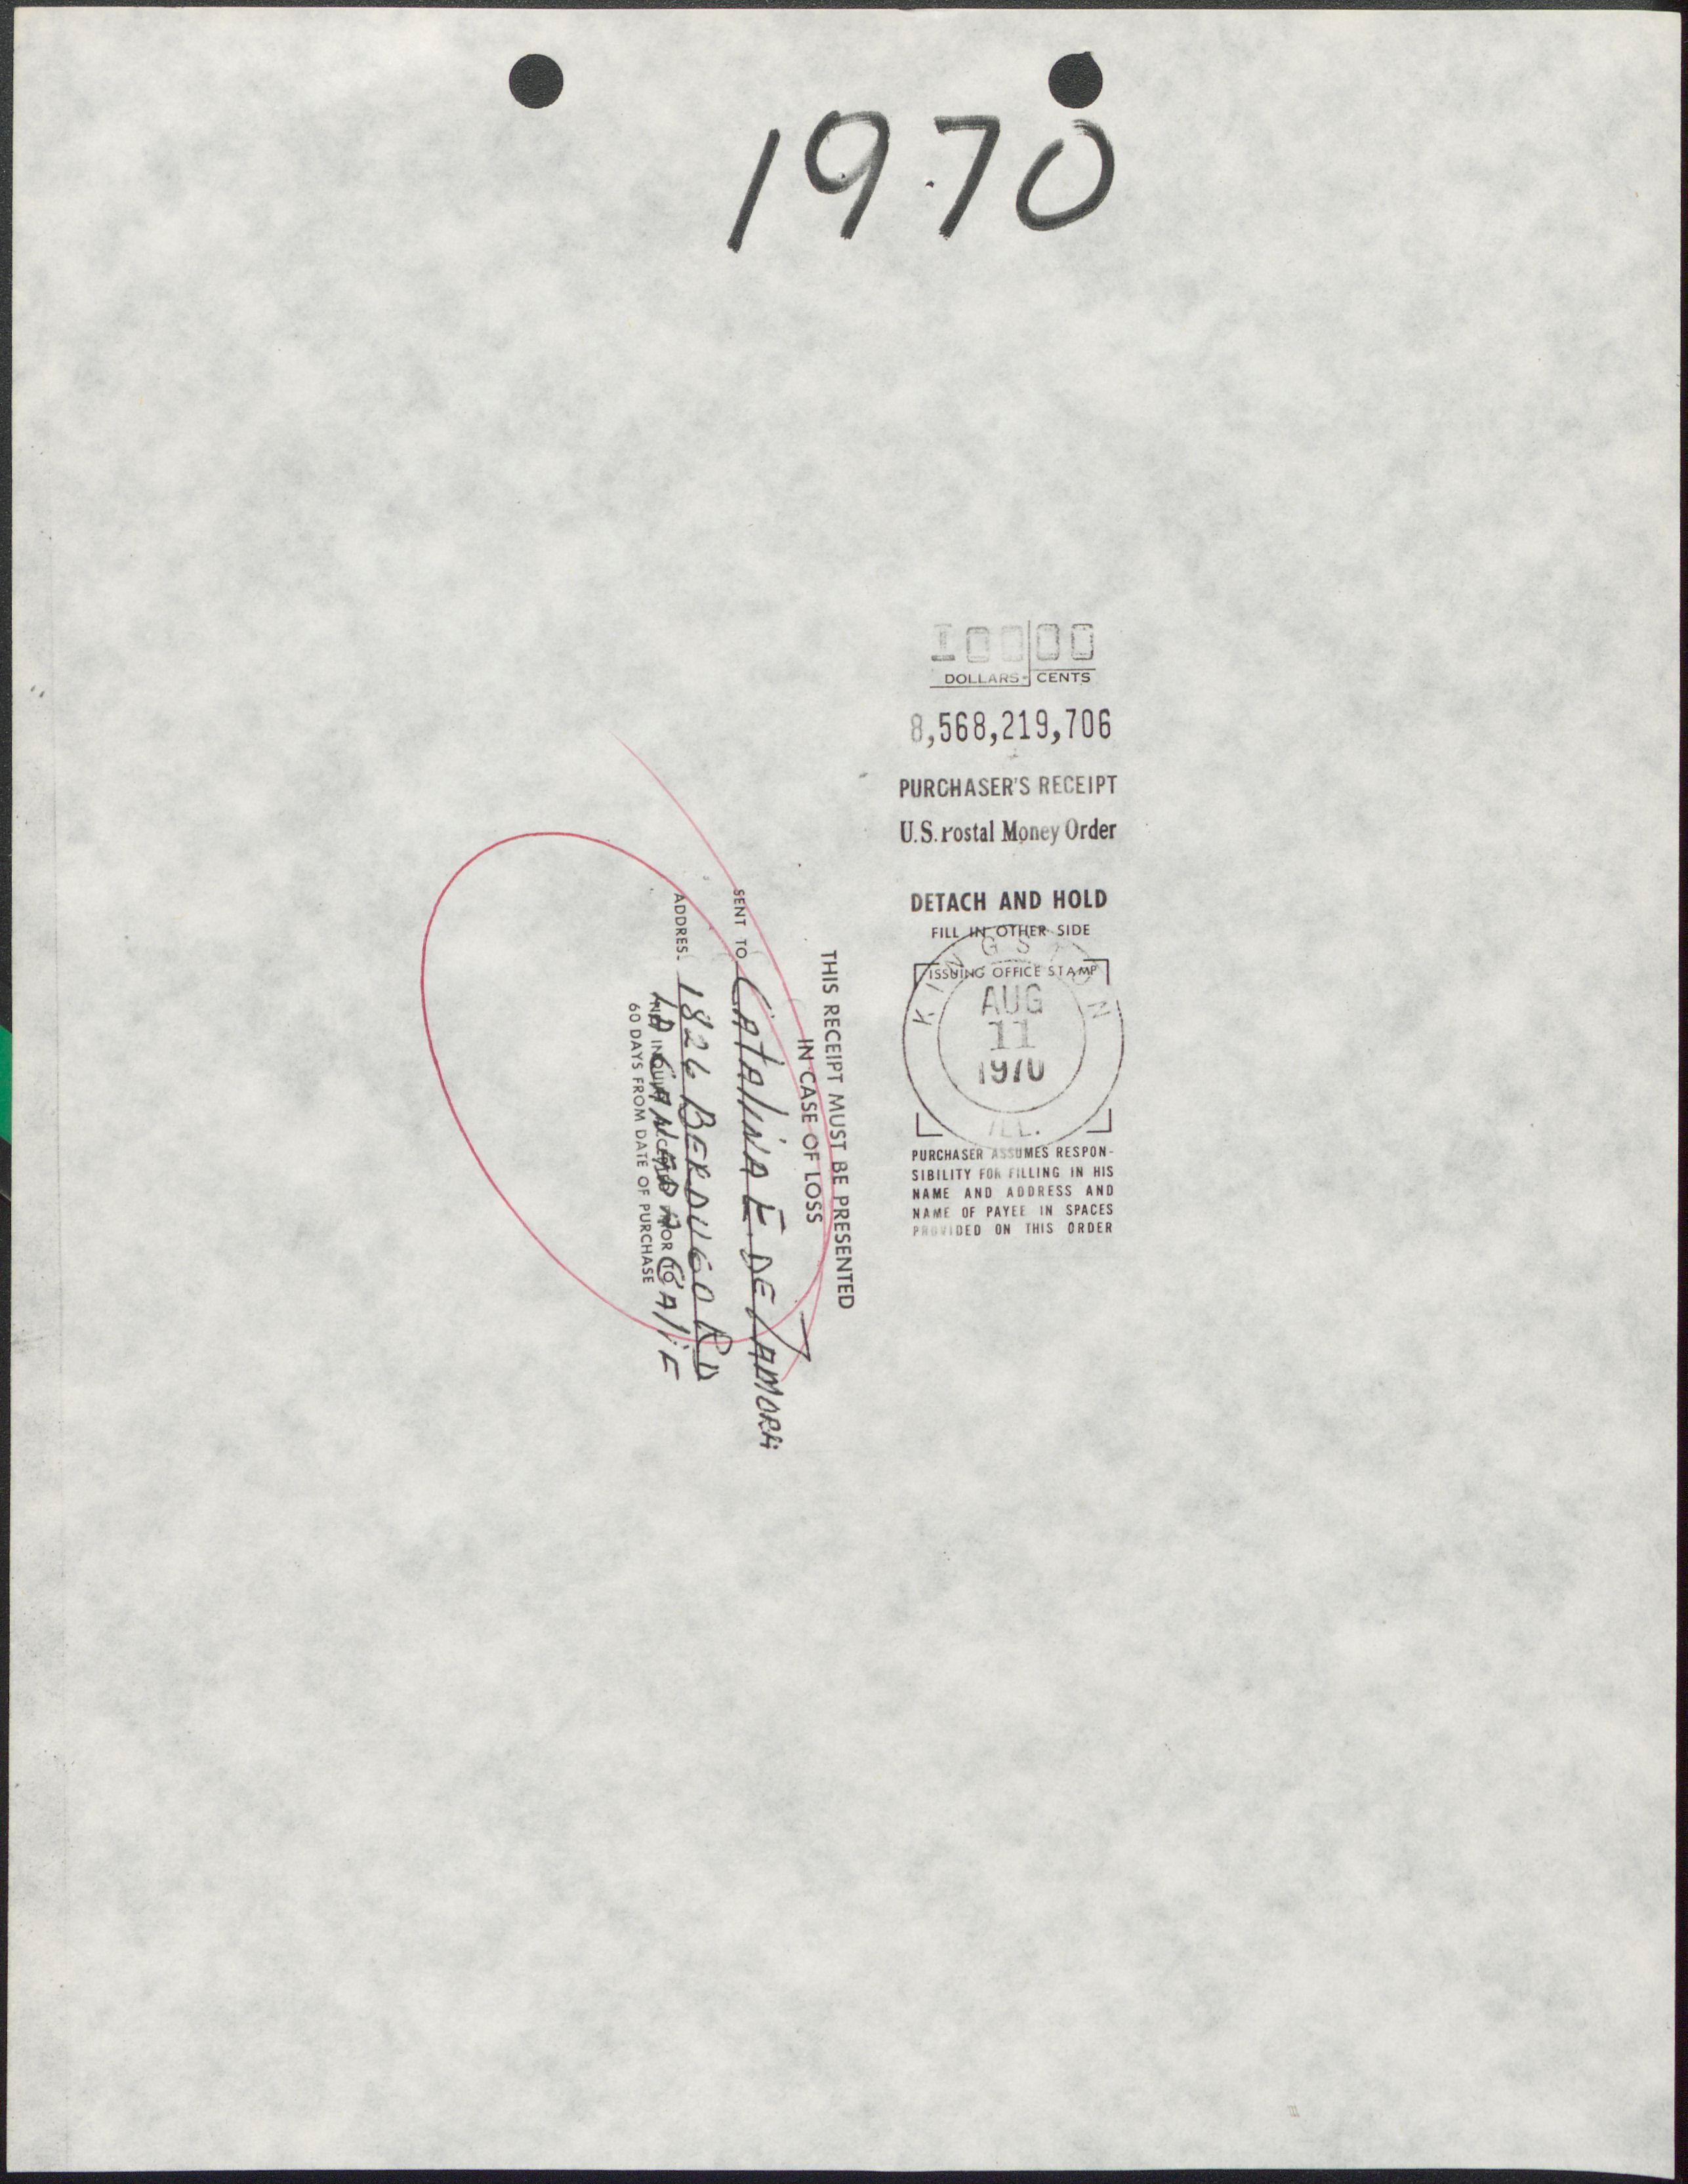 1970
100 00
DOLLARS CENTS
8,568,219,706
PURCHASER'S RECEIPT
U.S. Postal Money Order
DETACH AND HOLD
FILL IN OTHER SIDE
ISSUING OFFICE STAMP
KINGSTON
AUG
11
1970
ILL.
PURCHASER ASSUMES RESPON-
SIBILITY FOR FILLING IN HIS
NAME AND ADDRESS AND
NAME OF PAYEE IN SPACES
PROVIDED ON THIS ORDER
THIS RECEIPT MUST BE PRESENTED
IN CASE OF LOSS
SENT TO CATALINA E. DE ZAMORA
ADDRESS 1826 BERDUGO RD
LA CANADA CALIF
NO INQUIRY ACCEPTED PRIOR TO
60 DAYS FROM DATE OF PURCHASE